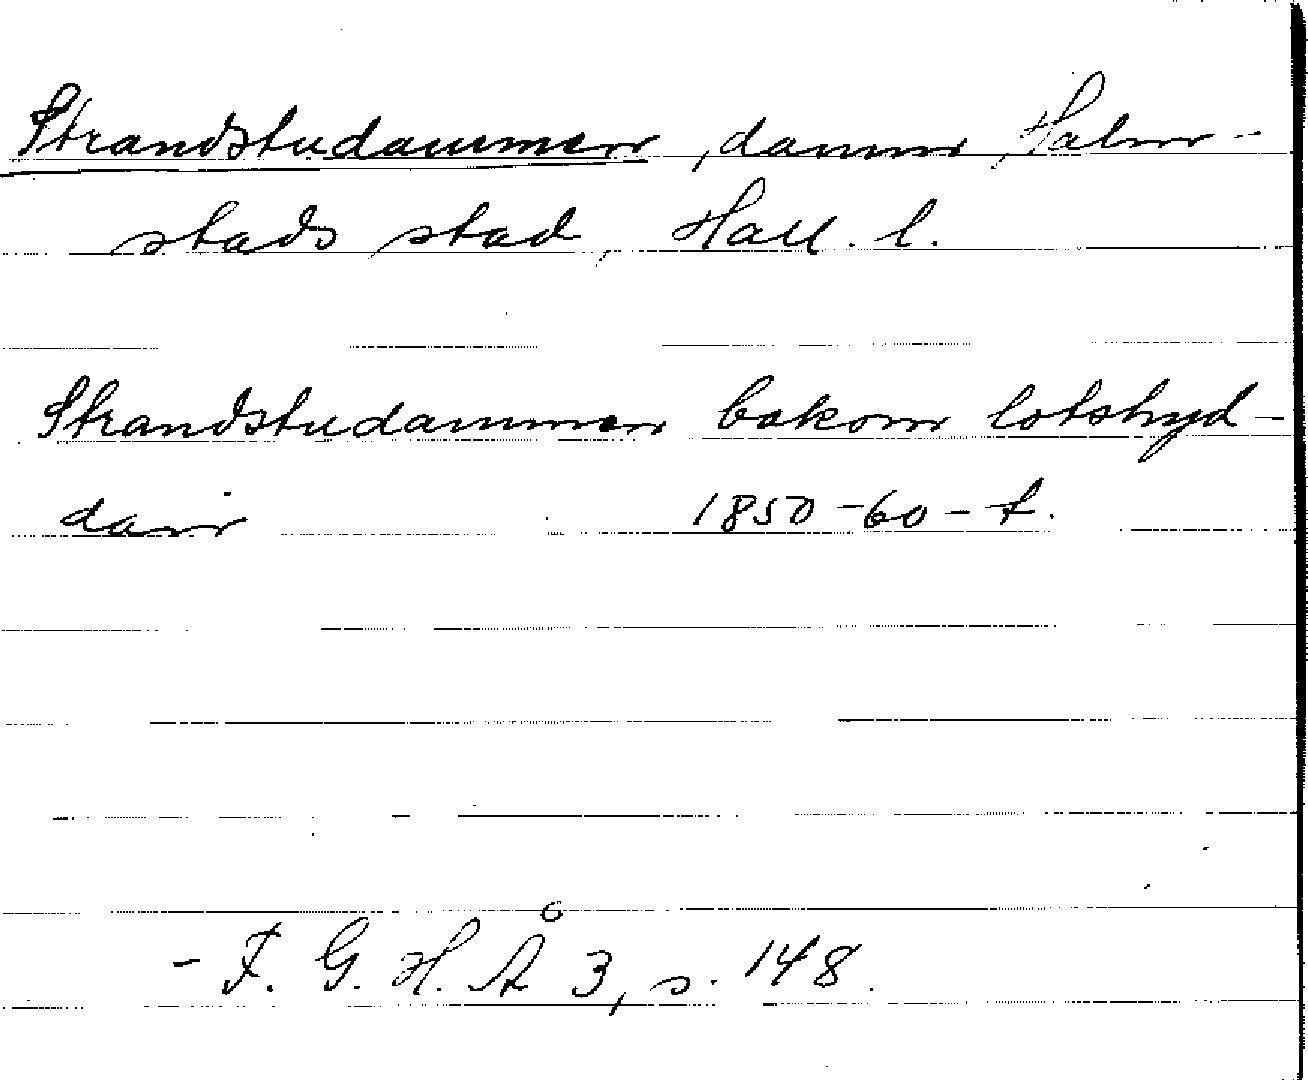 Strandstudammen, damm, Halm-
stads stad, Hall. l.
Strandstudammen bakom lotshyd-
dan 1850-60-t.
- F. G. H. Å 3, s. 148.